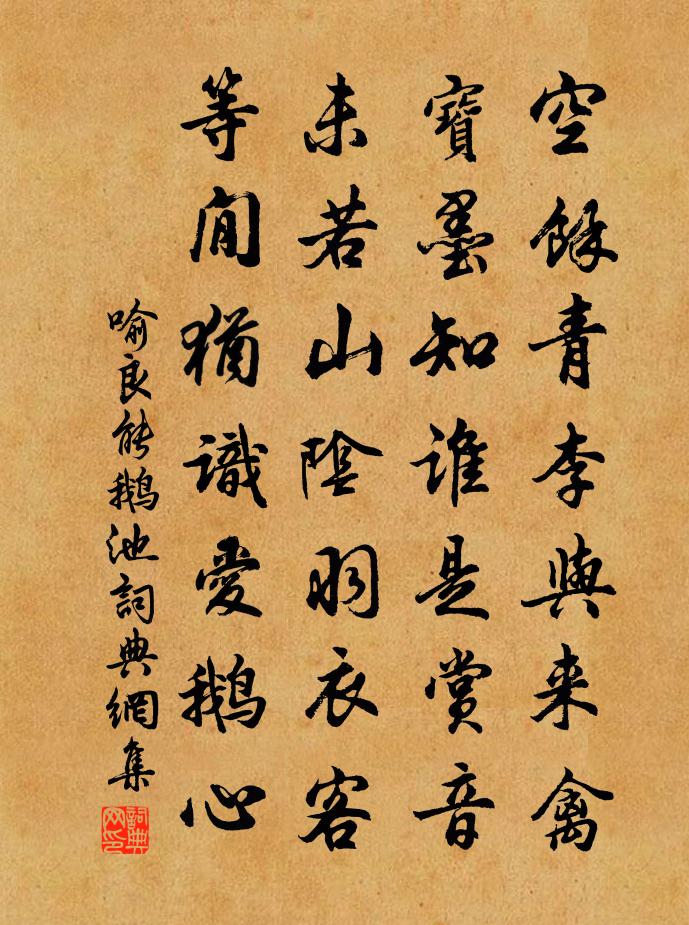 空餘青李與来禽
寶墨知誰是賞音
未若山陰羽衣客
等閒猶識愛鵝心
喻良能鵝池詞典網集
詞典网印